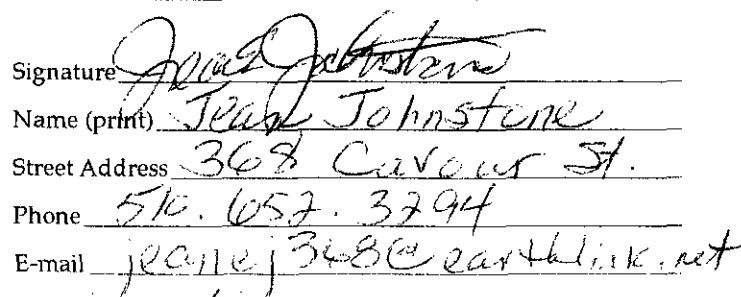 Signature Jean Johnstone
Name (print) Jean Johnstone
Street Address 368 Cavour St.
Phone 510. 652. 3294
E-mail jeanej368@earthlink.net